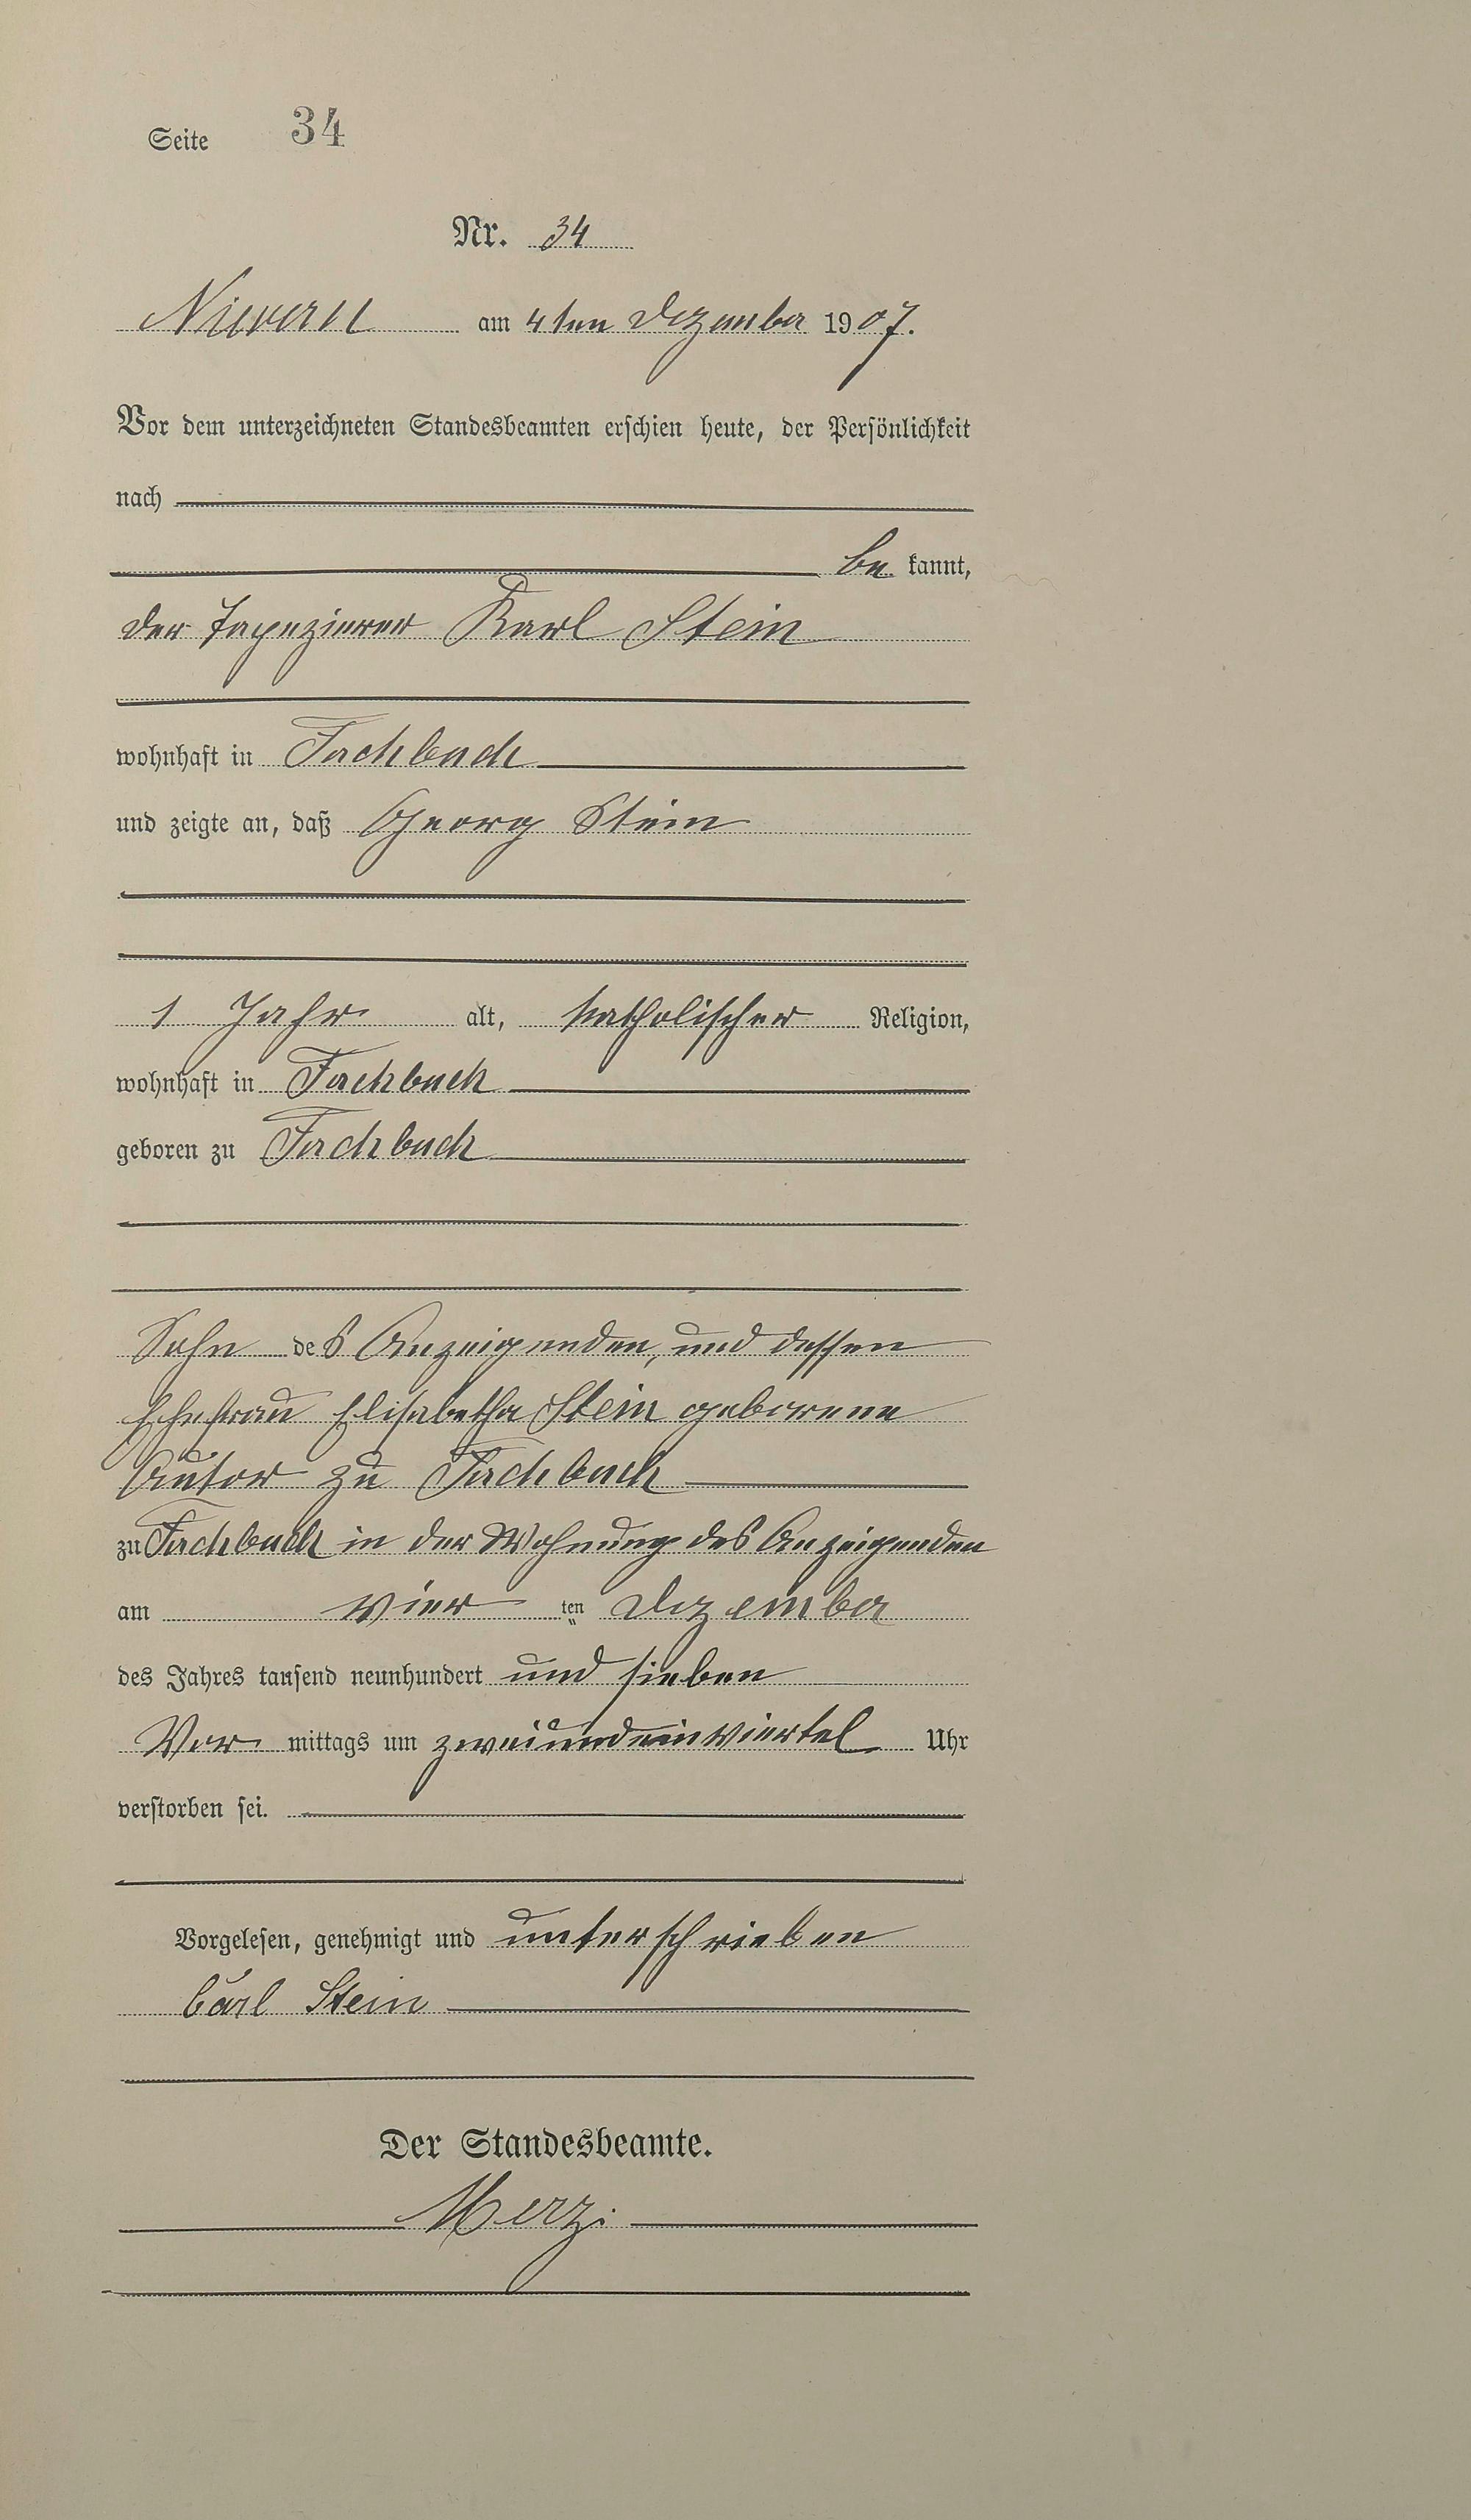 Seite 34
Nr. 34
Nievern am 4ten Dezember 1907.
Vor dem unterzeichneten Standesbeamten erschien heute, der Persönlichkeit
nach
be kannt,
der Tapezierer Karl Stein
wohnhaft in Fachbach
und zeigte an, daß Georg Stein
1 Jahr alt, katholischer Religion,
wohnhaft in Fachbach
geboren zu Fachbach
Sohn des Anzeigenden, und dessen
Ehefrau Elisabetha Stein geborene
zu Fachbach
zu Fachbach in der Wohnung des Anzeigenden
am vier ten Dezember
des Jahres tausend neunhundert und sieben
Vor mittags um zweiundeinviertel Uhr
verstorben sei.
Vorgelesen, genehmigt und unterschrieben
Carl Stein
Der Standesbeamte.
Merz.